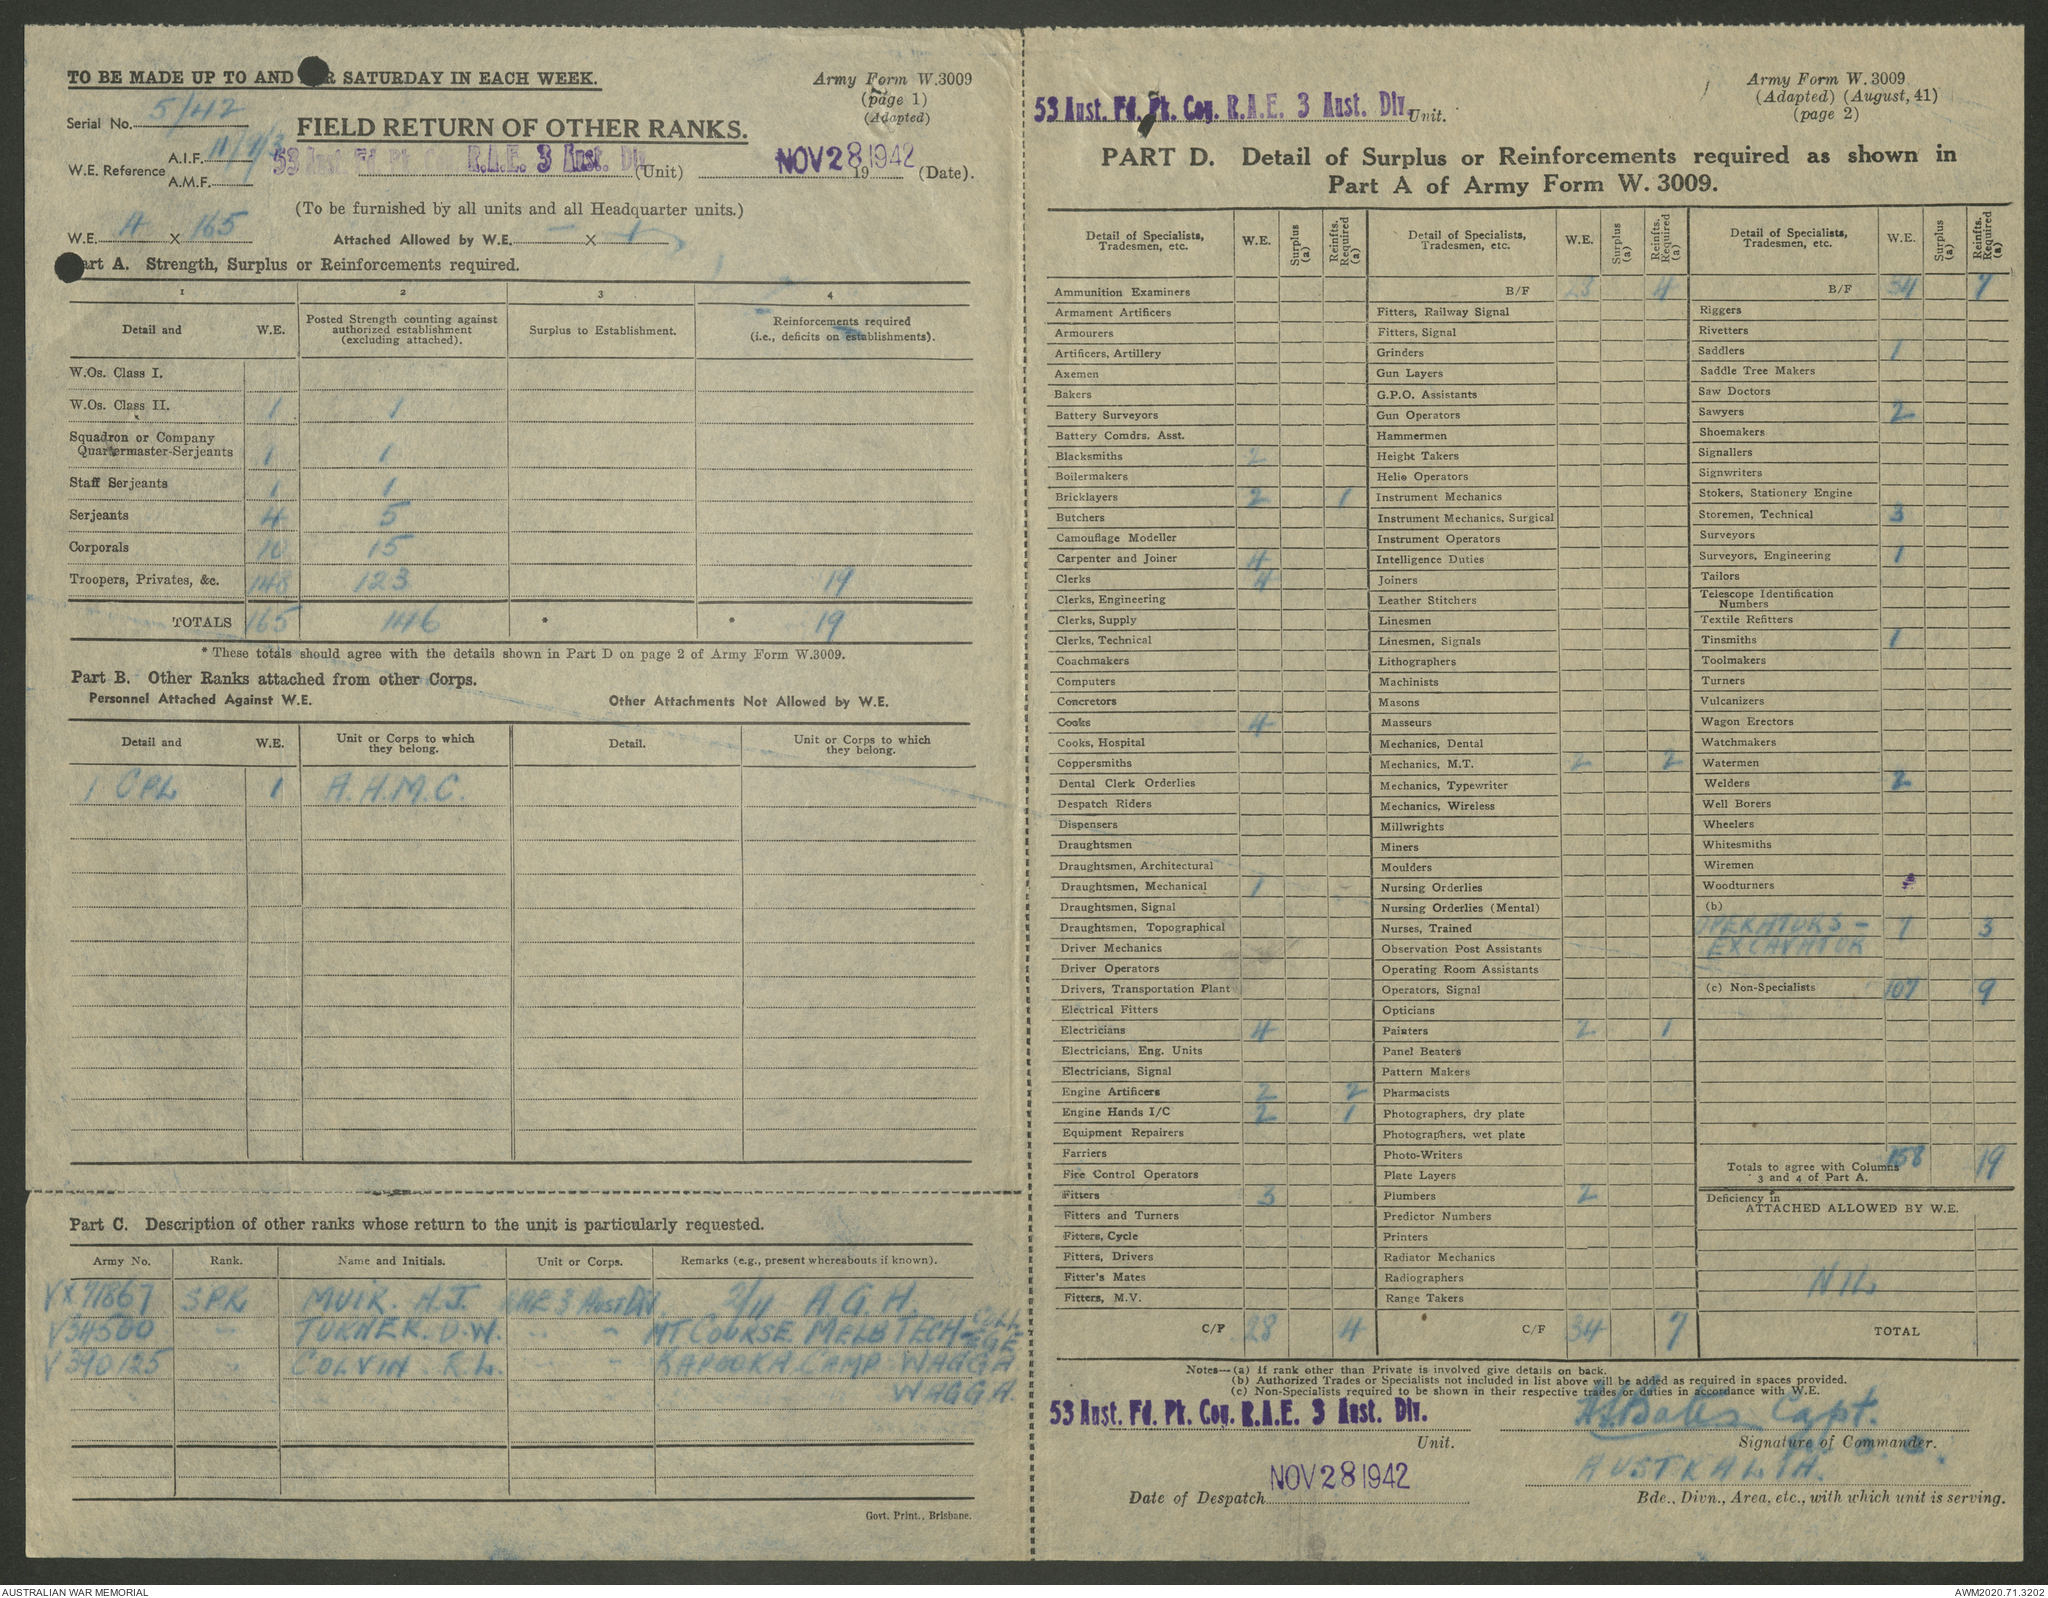 TO BE MADE UP TO AND SATURDAY IN EACH WEEK.
Army Form W.3009
(page 1)
(Adapted)
Serial No. 5/42
FIELD RETURN OF OTHER RANKS.
W.E. Reference A.I.F.
A.M.F.
53 Aust. Fd. Pk. Coy. R.A.E. 3 Aust. Div. (Unit) NOV 28 1942 19 (Date).
(To be furnished by all units and all Headquarter units.)
W.E. 4 X 165 Attached Allowed by W.E. – X 1
Part A. Strength, Surplus or Reinforcements required.
1 2 3 4
Detail and W.E. Posted Strength counting against authorized establishment (excluding attached). Surplus to Establishment. Reinforcements required (i.e., deficits on establishments).
W.Os. Class I.
W.Os. Class II. 1 1
Squadron or Company
Quartermaster-Serjeants 1 1
Staff Serjeants 1 1
Serjeants 4 5
Corporals 10 15
Troopers, Privates, &c. 148 123 19
TOTALS 165 146 * * 19
* These totals should agree with the details shown in Part D on page 2 of Army Form W.3009.
Part B. Other Ranks attached from other Corps.
Personnel Attached Against W.E. Other Attachments Not Allowed by W.E.
Detail and W.E. Unit or Corps to which they belong. Detail. Unit or Corps to which they belong.
1 CPL 1 A.A.M.C.
Part C. Description of other ranks whose return to the unit is particularly requested.
Army No. Rank. Name and Initials. Unit or Corps. Remarks (e.g., present whereabouts if known).
VX71867 SPR MUIR. A.J. RAE 3 Aust Div. 2/11 A.G.H.
V34500 " TURNER. D.W. " " MT COURSE MELB TECH COLLEGE
V390125 " COLVIN. R.L. " " KAPOOKA CAMP WAGGA
WAGGA.
Govt. Print., Brisbane.
Army Form W. 3009
(Adapted) (August, 41)
(page 2)
53 Aust. Fd. Pk. Coy. R.A.E. 3 Aust. Div. Unit.
PART D. Detail of Surplus or Reinforcements required as shown in
Part A of Army Form W. 3009.
Detail of Specialists, Tradesmen, etc. W.E. Surplus (a) Reinfts. Required (a)
Ammunition Examiners
Armament Artificers
Armourers
Artificers, Artillery
Axemen
Bakers
Battery Surveyors
Battery Comdrs. Asst.
Blacksmiths 2
Boilermakers
Bricklayers 2 1
Butchers
Camouflage Modeller
Carpenter and Joiner 4
Clerks 4
Clerks, Engineering
Clerks, Supply
Clerks, Technical
Coachmakers
Computers
Concretors
Cooks 4
Cooks, Hospital
Coppersmiths
Dental Clerk Orderlies
Despatch Riders
Dispensers
Draughtsmen
Draughtsmen, Architectural
Draughtsmen, Mechanical 1 -
Draughtsmen, Signal
Draughtsmen, Topographical
Driver Mechanics
Driver Operators
Drivers, Transportation Plant
Electrical Fitters
Electricians 4
Electricians, Eng. Units
Electricians, Signal
Engine Artificers 2 2
Engine Hands I/C 2 1
Equipment Repairers
Farriers
Fire Control Operators
Fitters 3
Fitters and Turners
Fitters, Cycle
Fitters, Drivers
Fitter's Mates
Fitters, M.V.
C/F 28 4
Detail of Specialists, Tradesmen, etc. W.E. Surplus (a) Reinfts. Required (a)
B/F 28 4
Fitters, Railway Signal
Fitters, Signal
Grinders
Gun Layers
G.P.O. Assistants
Gun Operators
Hammermen
Height Takers
Helio Operators
Instrument Mechanics
Instrument Mechanics, Surgical
Instrument Operators
Intelligence Duties
Joiners
Leather Stitchers
Linesmen
Linesmen, Signals
Lithographers
Machinists
Masons
Masseurs
Mechanics, Dental
Mechanics, M.T. 2 2
Mechanics, Typewriter
Mechanics, Wireless
Millwrights
Miners
Moulders
Nursing Orderlies
Nursing Orderlies (Mental)
Nurses, Trained
Observation Post Assistants
Operating Room Assistants
Operators, Signal
Opticians
Painters 2 1
Panel Beaters
Pattern Makers
Pharmacists
Photographers, dry plate
Photographers, wet plate
Photo-Writers
Plate Layers
Plumbers 2
Predictor Numbers
Printers
Radiator Mechanics
Radiographers
Range Takers
C/F 34 7
Detail of Specialists, Tradesmen, etc. W.E. Surplus (a) Reinfts. Required (a)
B/F 34 7
Riggers
Rivetters
Saddlers 1
Saddle Tree Makers
Saw Doctors
Sawyers 2
Shoemakers
Signallers
Signwriters
Stokers, Stationery Engine
Storemen, Technical 3
Surveyors
Surveyors, Engineering 1
Tailors
Telescope Identification
Numbers
Textile Refitters
Tinsmiths 1
Toolmakers
Turners
Vulcanizers
Wagon Erectors
Watchmakers
Watermen
Welders 2
Well Borers
Wheelers
Whitesmiths
Wiremen
Woodturners
(b)
OPERATORS – 7 3
EXCAVATOR
(c) Non-Specialists 107 9
Totals to agree with Columns 158 19
3 and 4 of Part A.
Deficiency in
ATTACHED ALLOWED BY W.E.
NIL
TOTAL
Notes—(a) If rank other than Private is involved give details on back.
(b) Authorized Trades or Specialists not included in list above will be added as required in spaces provided.
(c) Non-Specialists required to be shown in their respective trades or duties in accordance with W.E.
53 Aust. Fd. Pk. Coy. R.A.E. 3 Aust. Div. Bates Capt.
Unit. Signature of Commander.
AUSTRALIA.
NOV 28 1942
Date of Despatch Bde., Divn., Area, etc., with which unit is serving.
AUSTRALIAN WAR MEMORIAL
AWM2020.71.3202